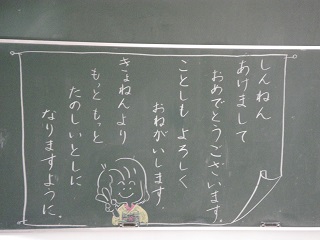 しんねん
あけまして
おめでとうございます。
ことしも よろしく
おねがいします
きょねんより
もっと もっと
たのしいとしに
なりますように。